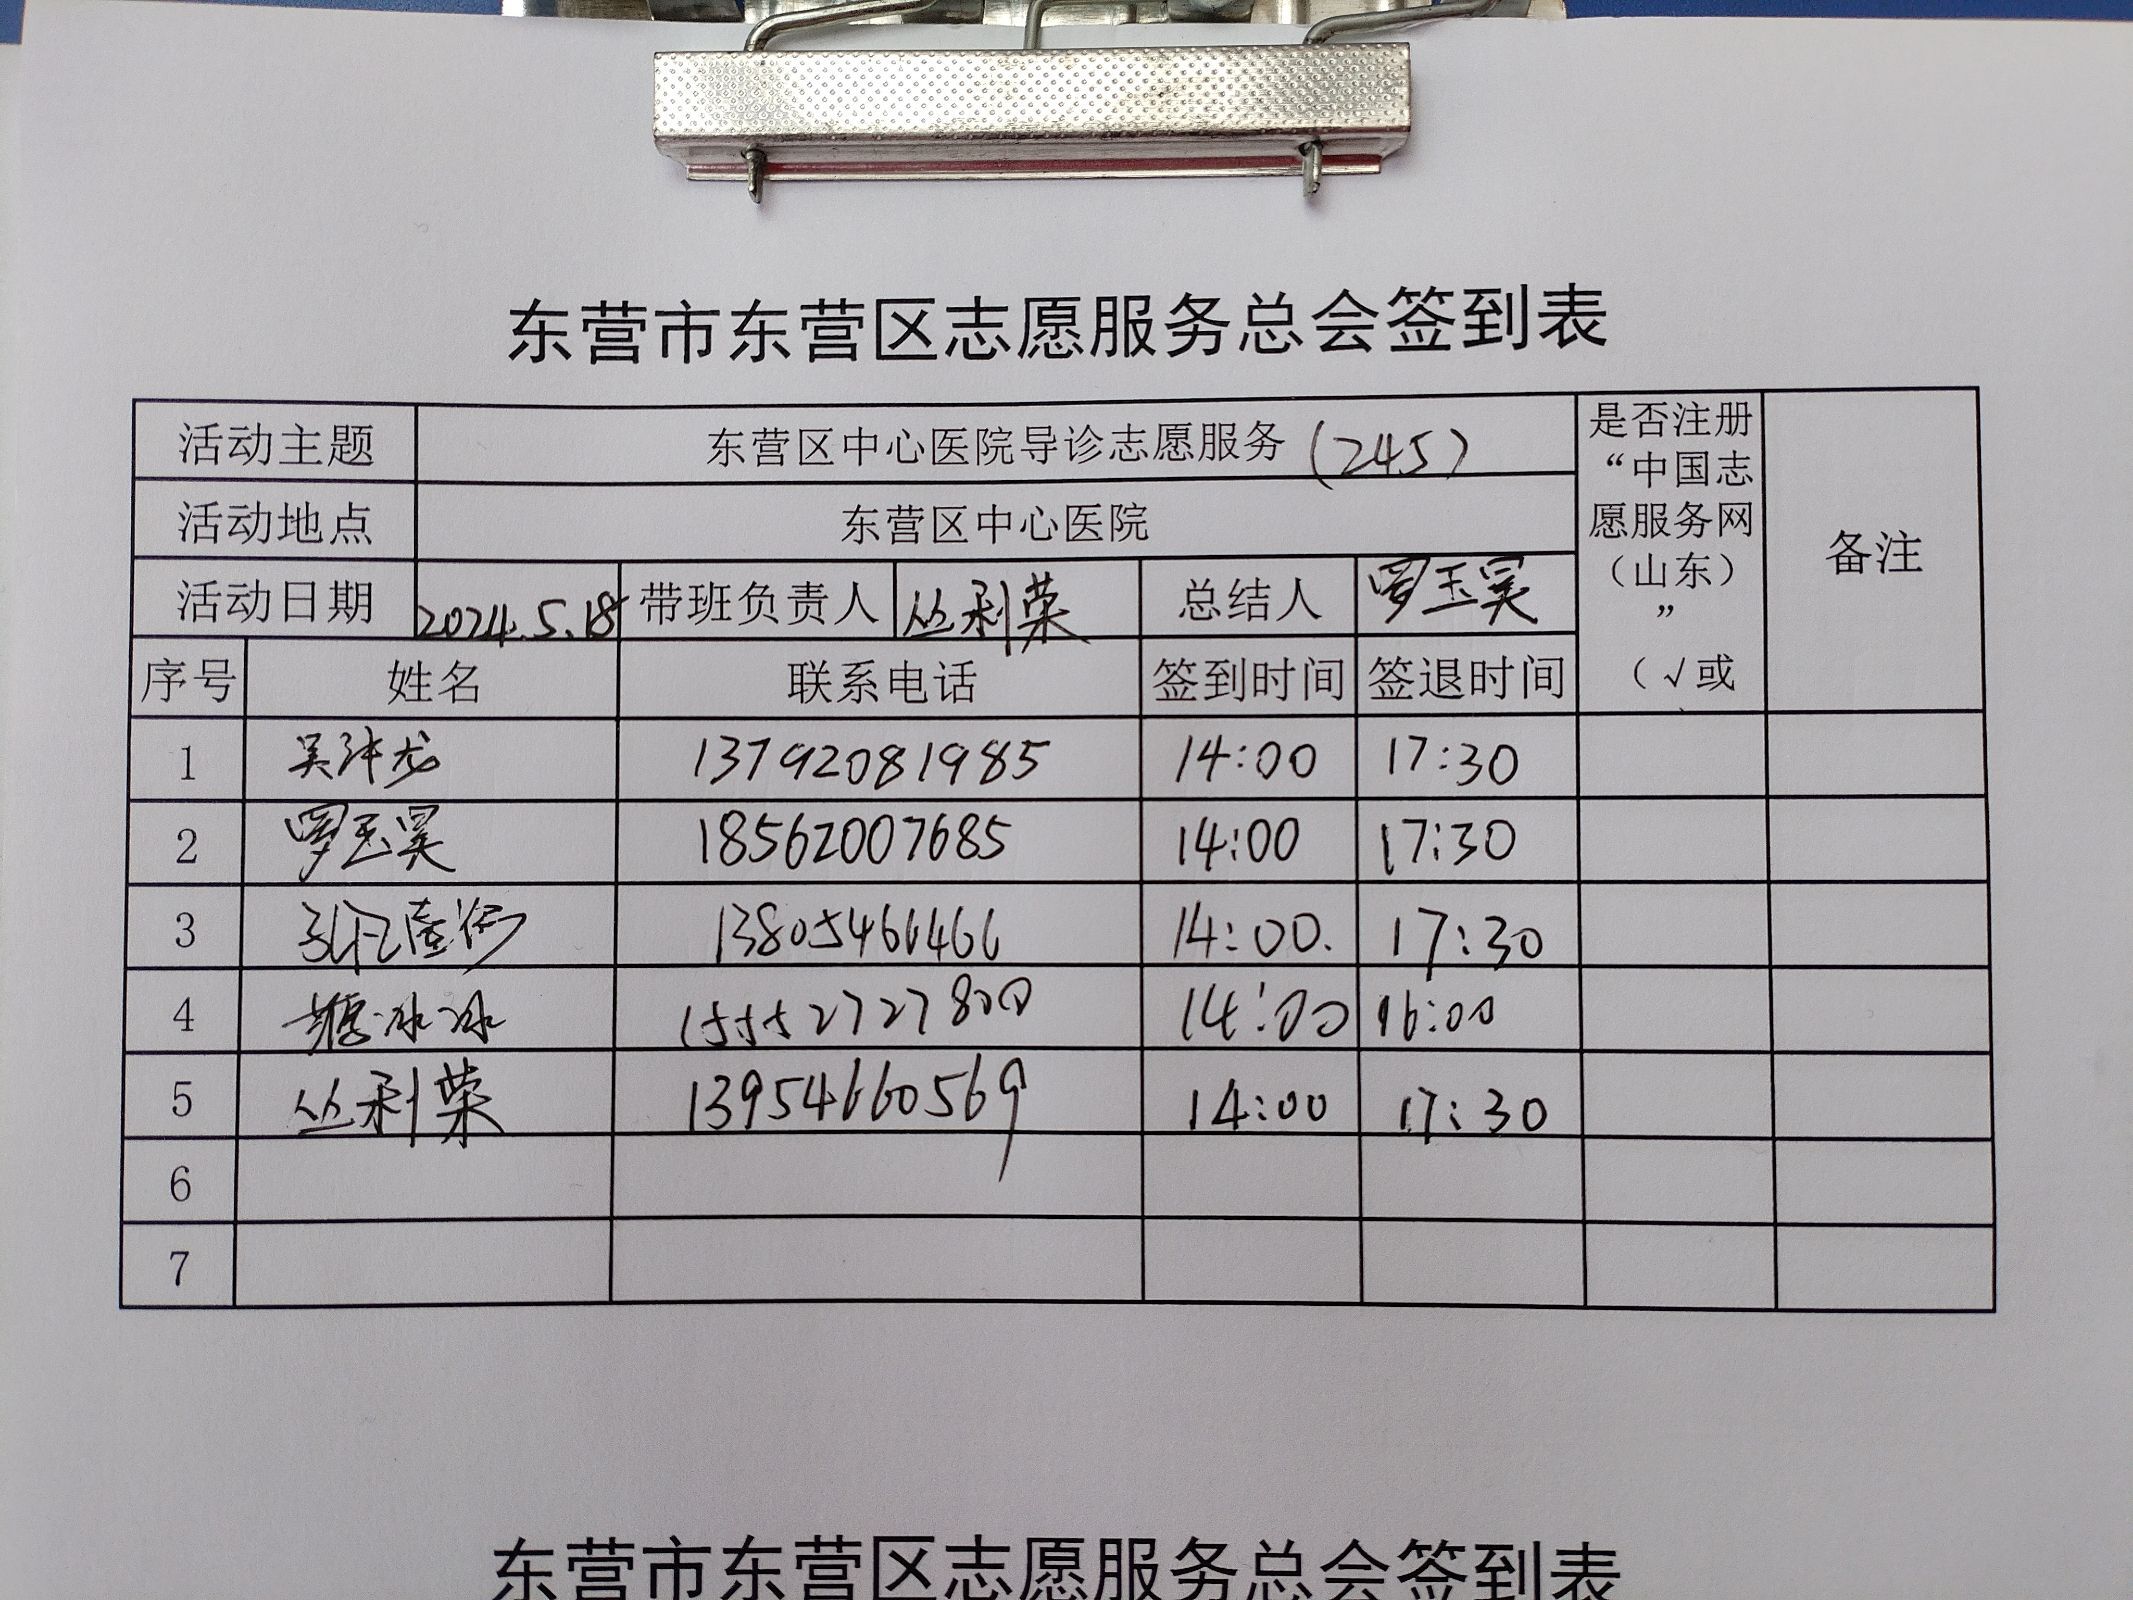 东营市东营区志愿服务总会签到表
活动主题 东营区中心医院导诊志愿服务 (245) 是否注册“中国志愿服务网（山东）”（√或 备注
活动地点 东营区中心医院
活动日期 2024.5.18 带班负责人 丛利荣 总结人 罗玉昊
序号 姓名 联系电话 签到时间 签退时间
1 吴沣龙 13792081985 14:00 17:30
2 罗玉昊 18562007685 14:00 17:30
3 13805466466 14:00. 17:30
4 冰冰 15552727800 14:00 16:00
5 丛利荣 13954660569 14:00 17:30
6
7
东营市东营区志愿服务总会签到表